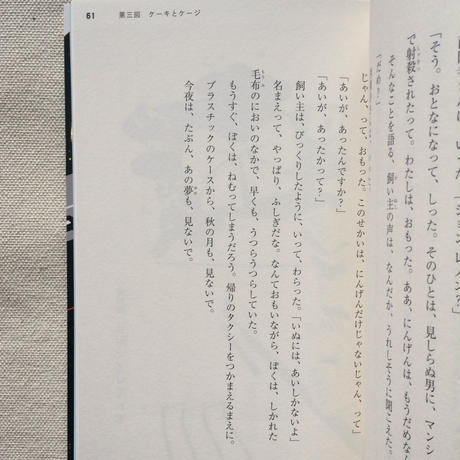 で射殺されたって。わたしは、おもった。ああ、にんげんは、もうだめなん
「そう。おとなになって、しった。そのひとは、見しらぬ男に、マンシ
そんなことを語る、飼い主の声は、なんだか、うれしそうに聞こえた。
61
第三回 ケーキとケージ
じゃん、って、おもった。このせかいは、にんげんだけじゃないじゃん、って」
「あいが、あったんですか?」
「あいが、あったかって?」
飼い主は、びっくりしたように、いって、わらった。「いぬには、あいしかないよ」
名まえって、やっぱり、ふしぎだな。なんておもいながら、ぼくは、しかれた
毛布のにおいのなかで、早くも、うつらうつらしていた。
もうすぐ、ぼくは、ねむってしまうだろう。帰りのタクシーをつかまえるまえに。
プラスチックのケースから、秋の月も、見ないで。
今夜は、たぶん、あの夢も、見ないで。